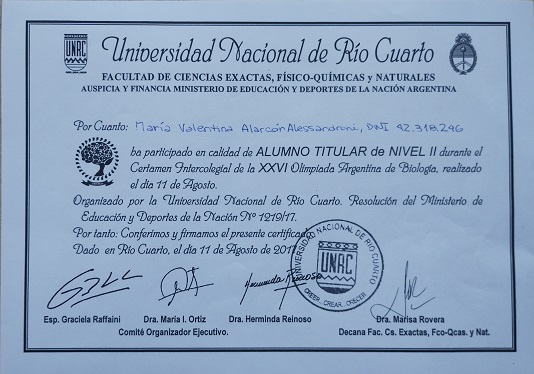 UNRC
Universidad Nacional de Río Cuarto
FACULTAD DE CIENCIAS EXACTAS, FÍSICO-QUÍMICAS y NATURALES
AUSPICIA Y FINANCIA MINISTERIO DE EDUCACIÓN Y DEPORTES DE LA NACIÓN ARGENTINA
Por Cuanto: María Valentina Alarcón Alessandroni, DNI 42.318.246
ha participado en calidad de ALUMNO TITULAR de NIVEL II durante el
Certamen Intercolegial de la XXVI Olimpíada Argentina de Biología, realizado
el día 11 de Agosto.
Organizado por la Universidad Nacional de Río Cuarto. Resolución del Ministerio de
Educación y Deportes de la Nación Nº 1219/17.
Por tanto: Conferimos y firmamos el presente certificado
Dado en Río Cuarto, el día 11 de Agosto de 2017
UNIVERSIDAD NACIONAL DE RÍO CUARTO
UNRC
CREER... CREAR... CRECER
Herminda Reinoso
Esp. Graciela Raffaini
Dra. María I. Ortiz
Dra. Herminda Reinoso
Dra. Marisa Rovera
Comité Organizador Ejecutivo.
Decana Fac. Cs. Exactas, Fco-Qcas. y Nat.